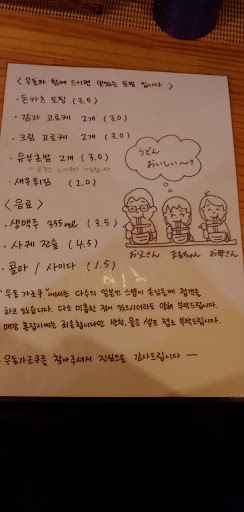 < 우동과 함께 드시면 맛있는 토핑 입니다 >
· 돈카츠 토핑 (3.5)
· 감자 고로케 2개 (3.0)
· 크림 고로케 2개 (3.0)
· 유부초밥 2개 (3.0)
· 새우튀김 (2.0)
うどん
おいしい〜!!
お父さん まるちゃん お母さん
< 음료 >
· 생맥주 355ml (3.5)
· 사케 잔술 (4.5)
· 콜라 / 사이다 (1.5)
"우동 가조쿠"에서는 다수의 일본인 스텝이 손님들께 접객을
하고 있습니다. 다소 미흡한 점이 있으시더라도 양해 부탁드립니다.
매장 혼잡시에는 죄송합니다만 반찬, 물은 셀프 협조 부탁드립니다.
· 우동가조쿠를 찾아주셔서 진심으로 감사드립니다 —